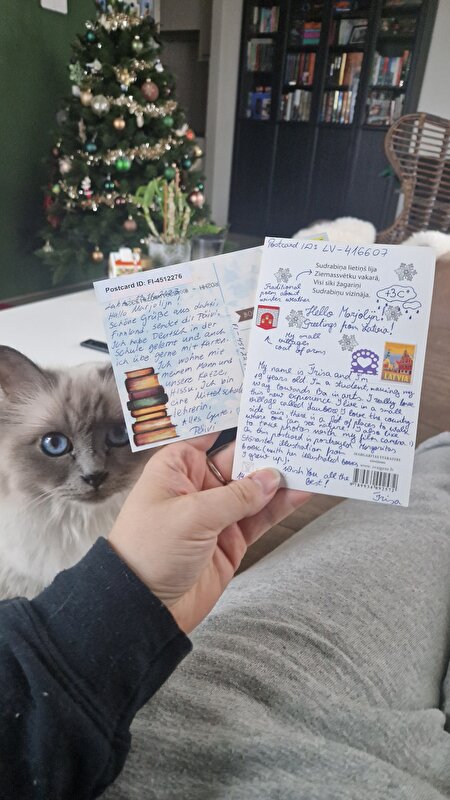 Postcard ID: FI-4512276
Hello Marjolijn!
Schöne Grüße aus
Finnland sendet dir Päivi.
Ich habe Deutsch in der
Schule gelernt und auch
Ich übe gerne mit Karten
Ich wohne mit
meinem Mann und
unsere Katze,
Hissu. Ich bin
eine Mittelschul-
lehrerin.
Alles Gute,
Päivi
Postcard ID: LV-416607
Sudrabiņa lietiņš lija
Ziemassvētku vakarā,
Visi sīki žagariņi
Sudrabiņu vizināja.
Traditional
poem about
winter weather
+3C°
Hello Marjolijn!
Greetings from Latvia!
My small
villages
coat of arms
LATVIA
My name is Irisa and I'm
19 years old. I'm a student making my
way towards Ba in arts. I really love
this new experience. I live in a small
village called I love the country
side
where one can see nature (I also love
to take photos with my film camera).
On the postcard is portrayed Margarita
Stāraste illustration from
book (with her illustrated books
I grew up).
Wish you all the
best!
Irisa
MARGARITAS STĀRASTES